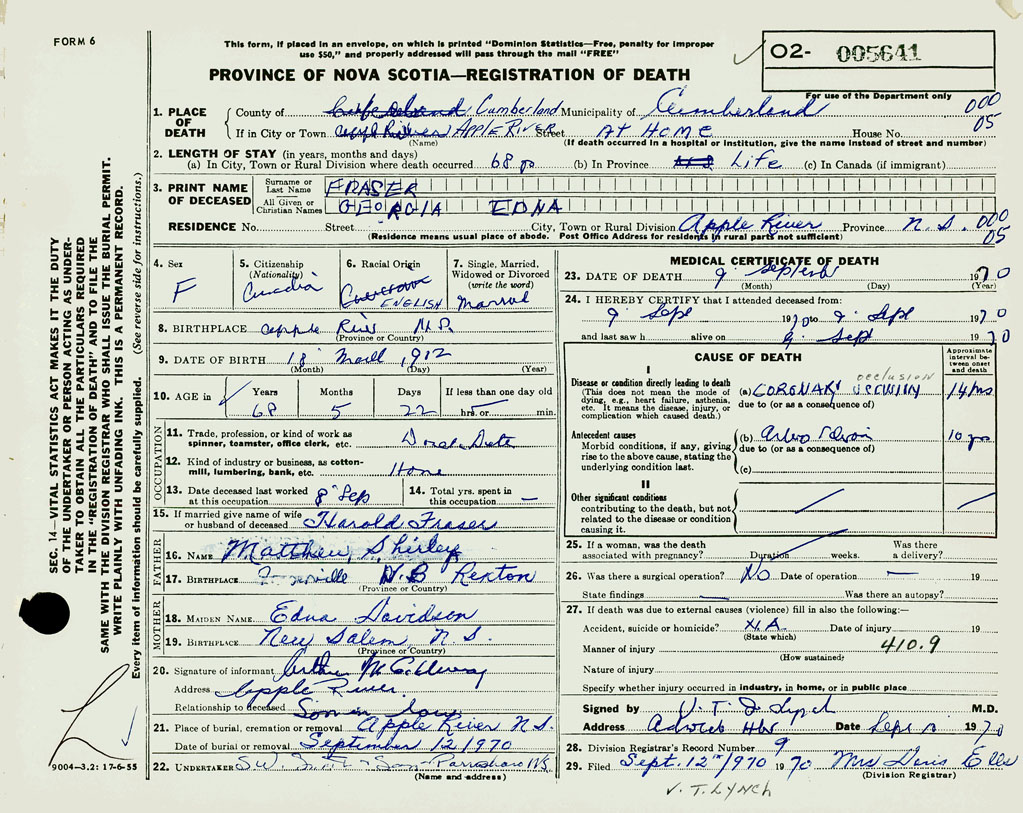 FORM 6
This form, if placed in an envelope, on which is printed "Dominion Statistics—Free, penalty for improper
use $50," and properly addressed will pass through the mail "FREE"
PROVINCE OF NOVA SCOTIA—REGISTRATION OF DEATH
02- 005641
For use of the Department only
1. PLACE OF DEATH
County of Cumberland Municipality of Cumberland 000
If in City or Town APPLE RIVER Street AT HOME House No. 05
(Name) (If death occurred in a hospital or institution, give the name instead of street and number)
2. LENGTH OF STAY (in years, months and days)
(a) In City, Town or Rural Division where death occurred 68 (b) In Province LIFE (c) In Canada (if immigrant)
3. PRINT NAME OF DECEASED
Surname or Last Name FRASER
All Given or Christian Names GEORGIA EDNA
RESIDENCE No. Street City, Town or Rural Division Apple River Province N.S. 000
05
(Residence means usual place of abode. Post Office Address for residents in rural parts not sufficient)
4. Sex F
5. Citizenship (Nationality)
6. Racial Origin ENGLISH
7. Single, Married, Widowed or Divorced (write the word)
8. BIRTHPLACE
(Province or Country)
9. DATE OF BIRTH 18 1912
(Month) (Day) (Year)
10. AGE in Years Months Days If less than one day
68 5 22 hrs. or min.
OCCUPATION
11. Trade, profession, or kind of work as spinner, teamster, office clerk, etc.
12. Kind of industry or business, as cotton-mill, lumbering, bank, etc. Home
13. Date deceased last worked at this occupation 8 Sep
14. Total yrs. spent in this occupation —
15. If married give name of wife or husband of deceased Harold Fraser
FATHER
16. NAME Matthew Shirley
17. BIRTHPLACE N.B Rexton
(Province or Country)
MOTHER
18. MAIDEN NAME Edna Davidson
19. BIRTHPLACE New Salem N.S.
(Province or Country)
20. Signature of informant
Address Apple River
Relationship to deceased
21. Place of burial, cremation or removal Apple River N.S.
Date of burial or removal September 12/1970
22. UNDERTAKER Son Parrsboro NS
(Name and address)
MEDICAL CERTIFICATE OF DEATH
23. DATE OF DEATH 9 1970
(Month) (Day) (Year)
24. I HEREBY CERTIFY that I attended deceased from:
9 Sept 1970 to 9 Sept 1970
and last saw h alive on 9 Sept 1970
CAUSE OF DEATH
Approximate interval between onset and death
I
Disease or condition directly leading to death
(This does not mean the mode of dying, e.g., heart failure, asthenia, etc. It means the disease, injury, or complication which caused death.)
occlusion
(a) CORONARY
due to (or as a consequence of)
Antecedent causes
Morbid conditions, if any, giving rise to the above cause, stating the underlying condition last.
(b)
due to (or as a consequence of)
10
(c)
II
Other significant conditions
contributing to the death, but not related to the disease or condition causing it.
25. If a woman, was the death associated with pregnancy? Duration weeks. Was there a delivery?
26. Was there a surgical operation? No Date of operation — 19
State findings — Was there an autopsy?
27. If death was due to external causes (violence) fill in also the following:—
Accident, suicide or homicide? N.A Date of injury 19
(State which)
Manner of injury 410.9
(How sustained)
Nature of injury
Specify whether injury occurred in industry, in home, or in public place
Signed by Lynch M.D.
Address Date Sept 1970
28. Division Registrar's Record Number 9
29. Filed Sept. 12th/1970 1970 Mrs Doris Ells
(Division Registrar)
V. T. LYNCH
SEC. 14—VITAL STATISTICS ACT MAKES IT THE DUTY
OF THE UNDERTAKER OR PERSON ACTING AS UNDER-
TAKER TO OBTAIN ALL THE PARTICULARS REQUIRED
IN THE "REGISTRATION OF DEATH" AND TO FILE THE
SAME WITH THE DIVISION REGISTRAR WHO SHALL ISSUE THE BURIAL PERMIT.
WRITE PLAINLY WITH UNFADING INK. THIS IS A PERMANENT RECORD.
Every item of information should be carefully supplied. (See reverse side for instructions.)
9004-3.2: 17-6-55